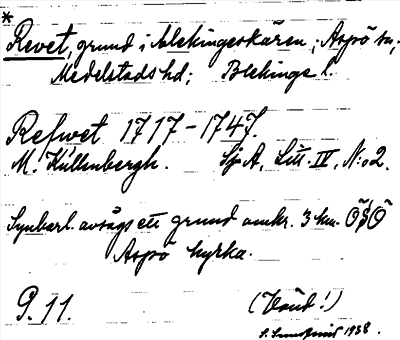 * Revet, grund i Blekingeskären; Aspö sn;
Medelstads hd; Blekinge l.
Refwet 1717-1747.
M. Kullenbergh. Sj A, Litt. IV, N:o 2.
Synbarl. avsågs ett grund omkr. 3 km. ÖSÖ
Aspö kyrka.
P. 11. (Vänd!)
1938.